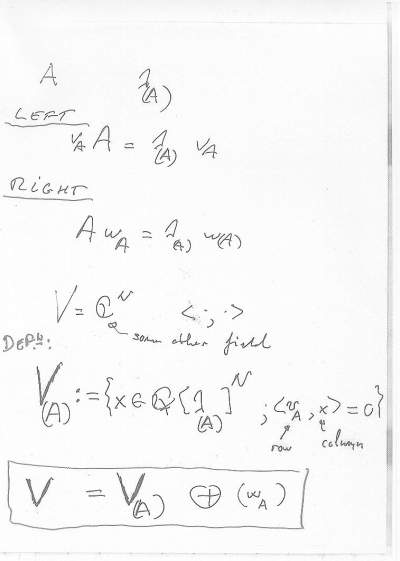 A λ(A)
LEFT
v_A A = λ(A) v_A
RIGHT
A w_A = λ(A) w(A)
V = ℂ^N < · , · >
some other field
DEF.:
V(A) := {x ∈ ℚ{λ(A)]^N ; <v_A , x> = 0}
row column
V = V(A) ⊕ (w_A)